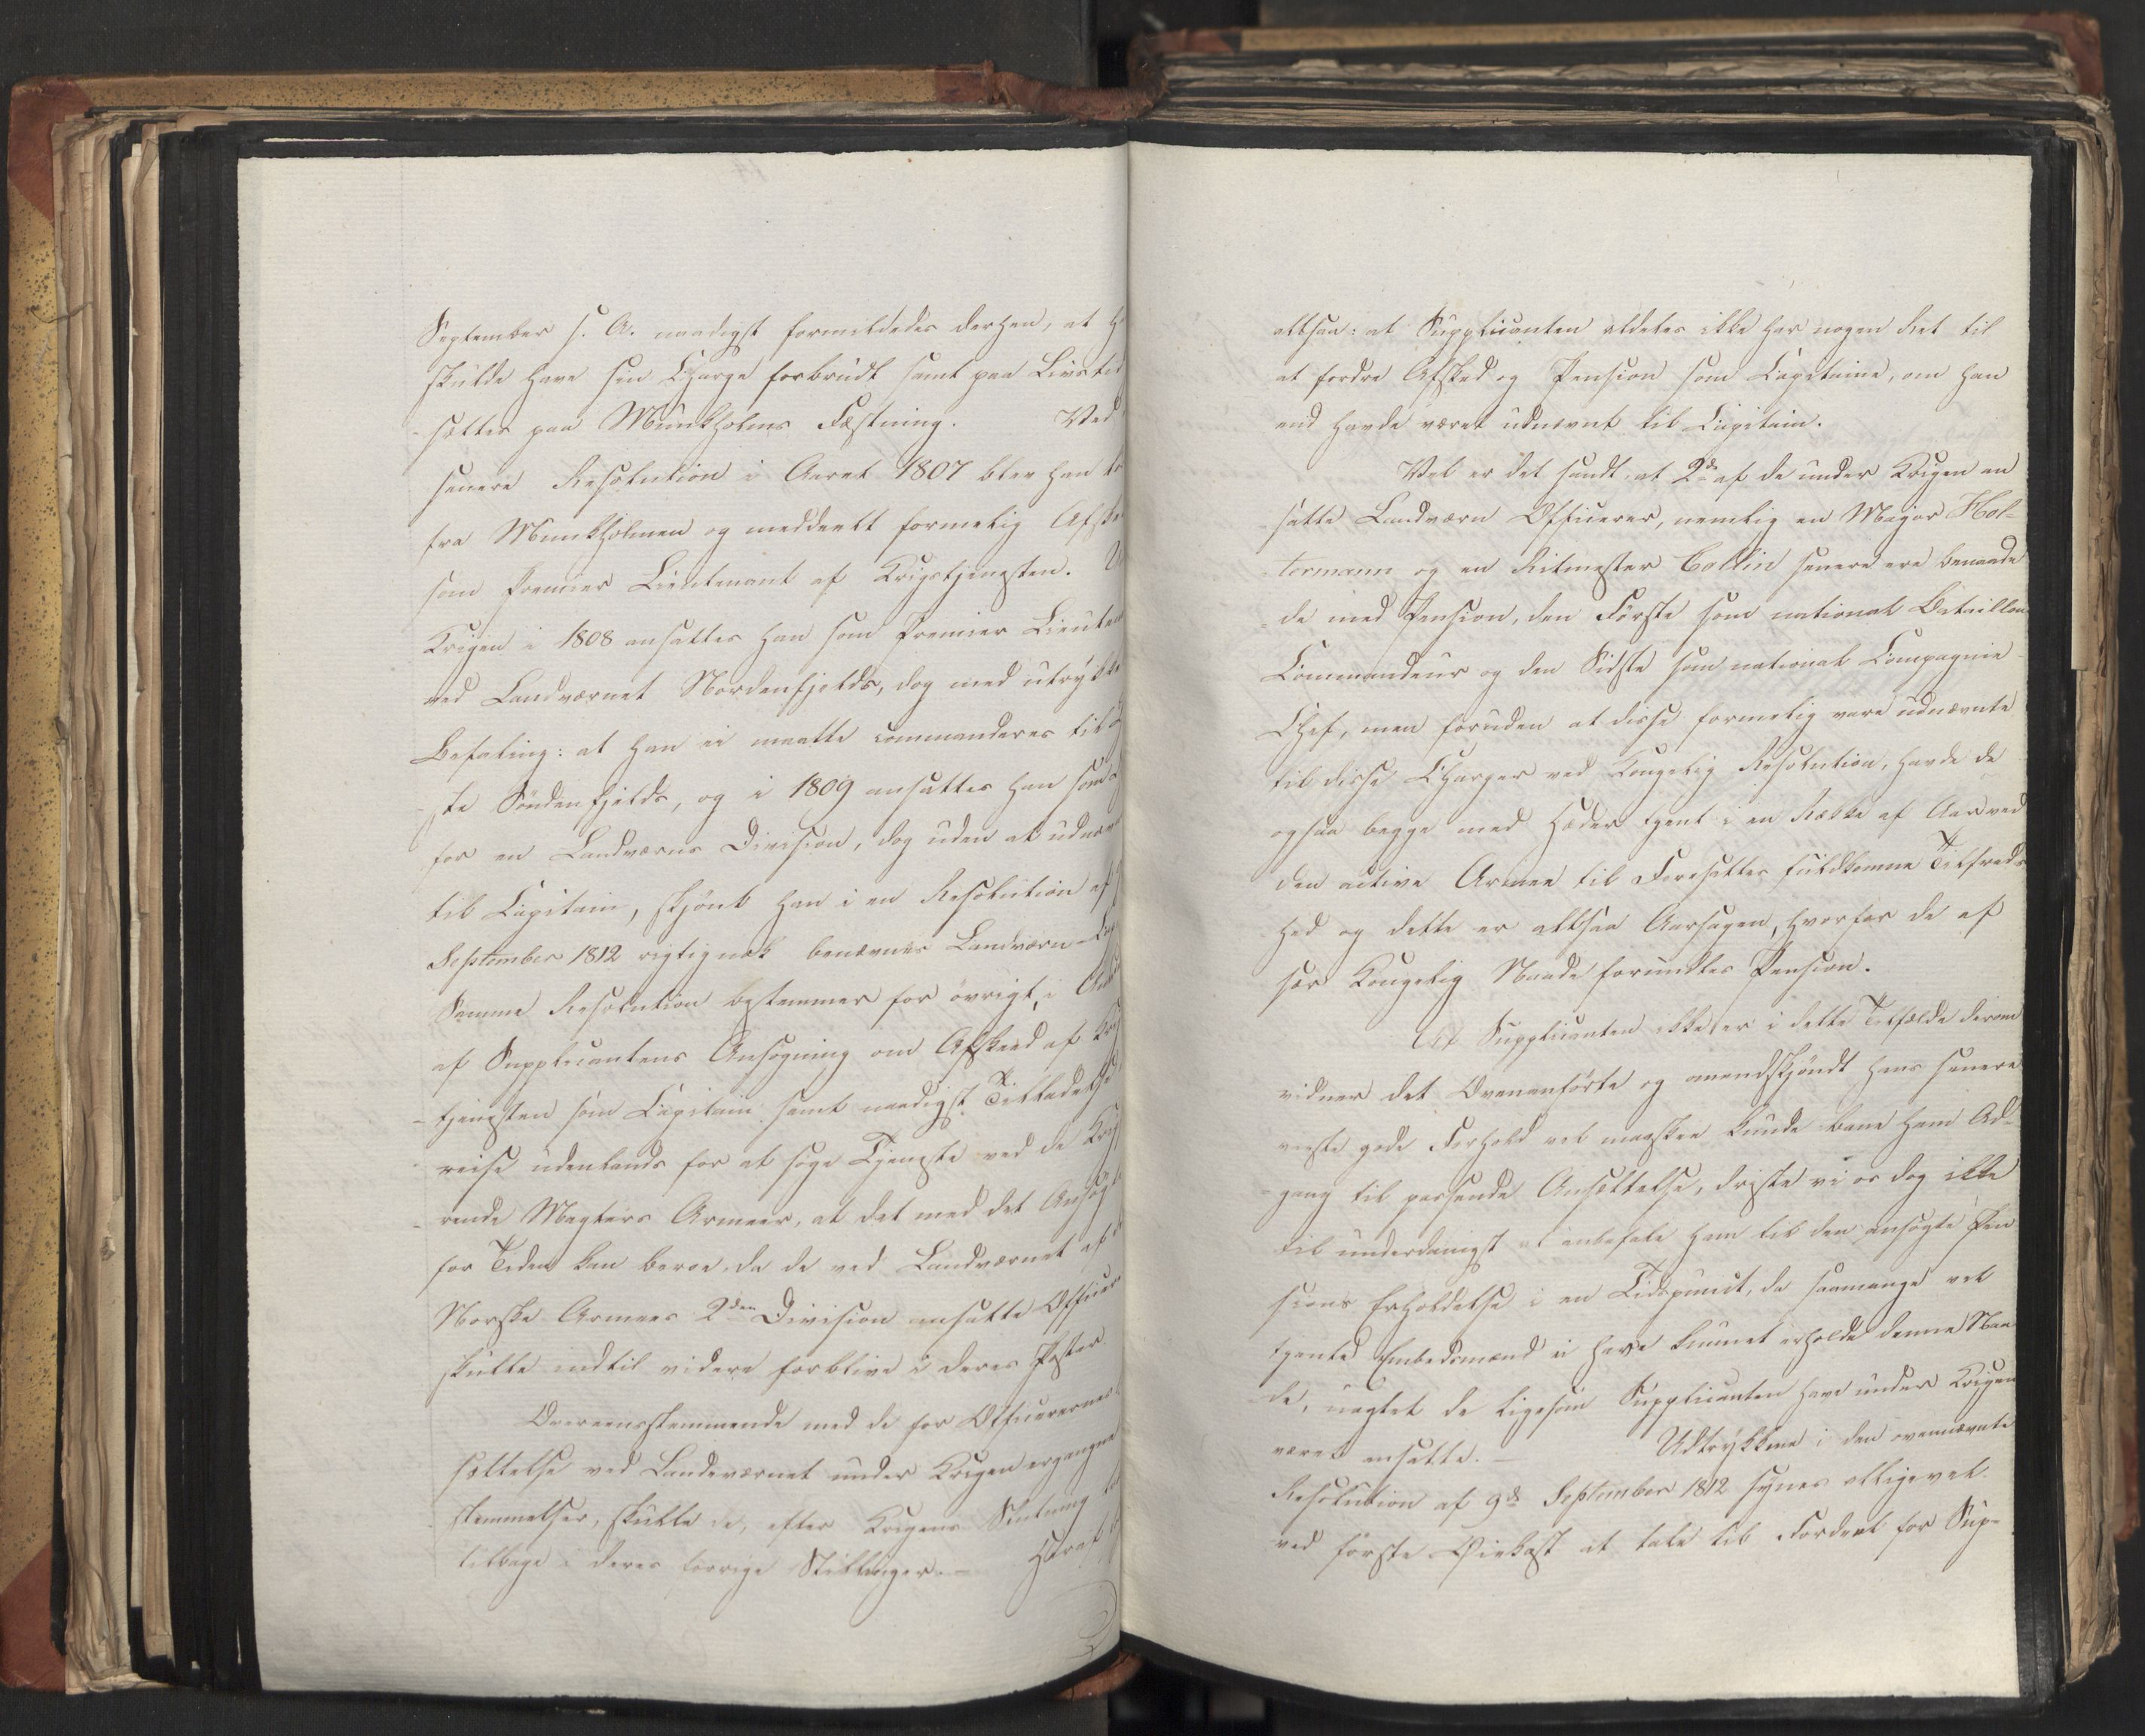 September s. A. naadigst formildedes derhen, at
skulde have sin Charge forbrudt samt paa Livstid
sættes paa Munkholms Fæstning. Ved
senere Resolution i Aaret 1807 blev han
fra Munkholmen og meddeelt formelig
som Premier Lieutenant af Krigstjenesten.
Krigen i 1808 ansattes han som Premier
ved Landværnet Nordenfjelds, dog med
Befaling: at han ei maatte commanderes til
Søndenfjelds, og i 1809 ansattes han som
for en Landværns Division, dog uden at
til Capitain, skjønt han i en Resolution af
September 1812 rigtignok benævnes Landværn-
Samme Resolution bestemmer for øvrigt, i
af Supplicantens Ansøgning om Afskeed af
tjenesten som Capitain samt naadigst Tilladelse
reise udenlands for at søge Tjeneste ved de
rende Magters Armeer, at det med det
for Tiden kan beroe, da de ved Landværnet af
Norske Armees 2den Division ansatte
skulle indtil videre forblive i deres Poster
Overeensstemmende med de for Officerernes
sættelse ved Landeværnet under Krigen ergangne
stemmelser, skulle de, efter Krigens Slutning
tilbage i deres forrige Stillinger. – Heraf
altsaa: at Supplicanten aldeles ikke har nogen Ret til
at fordre Afsked og Pension som Capitaine, om han
end havde været udnævnt til Capitain.
Vel er det sandt, at 2de af de under Krigen an
satte Landværn Officerer, nemlig en Major Hol-
termann og en Ritmester Collin senere ere benaade
de med Pension, den Første som national Bataillon
Commandeur og den Sidste som national Compagnie
Chef, men foruden at disse formelig vare udnævnte
til disse Charger ved Kongelig Resolution, havde de
ogsaa begge med Hæder tjent i en Række af Aar ved
den active Armee til Foresattes fuldkomne Tilfreds
hed og dette er altsaa Aarsagen, hvorfor de af
sær Kongelig Naade forundtes Pension.
At Supplicanten ikke er i dette Tilfælde derom
vidner det Ovenanførte og omendskjøndt hans senere
viiste gode Forhold vel maaskee kunde bane ham Ad-
gang til passende Ansættelse, driste vi os dog ikke
til underdanigst at anbefale ham til den ansøgte Pen
sions Erholdelse i en Tidspunct, da saamange vel
tjente Embedsmænd ei have kunnet erholde denne Naa
de, uagtet de ligesom Supplicanten have under Krigen
været ansatte. – Udtrykkene i den ovennævnte
Resolution af 9de September 1812 synes alligevel
ved første Øiekast at tale til Fordeel for Sup-